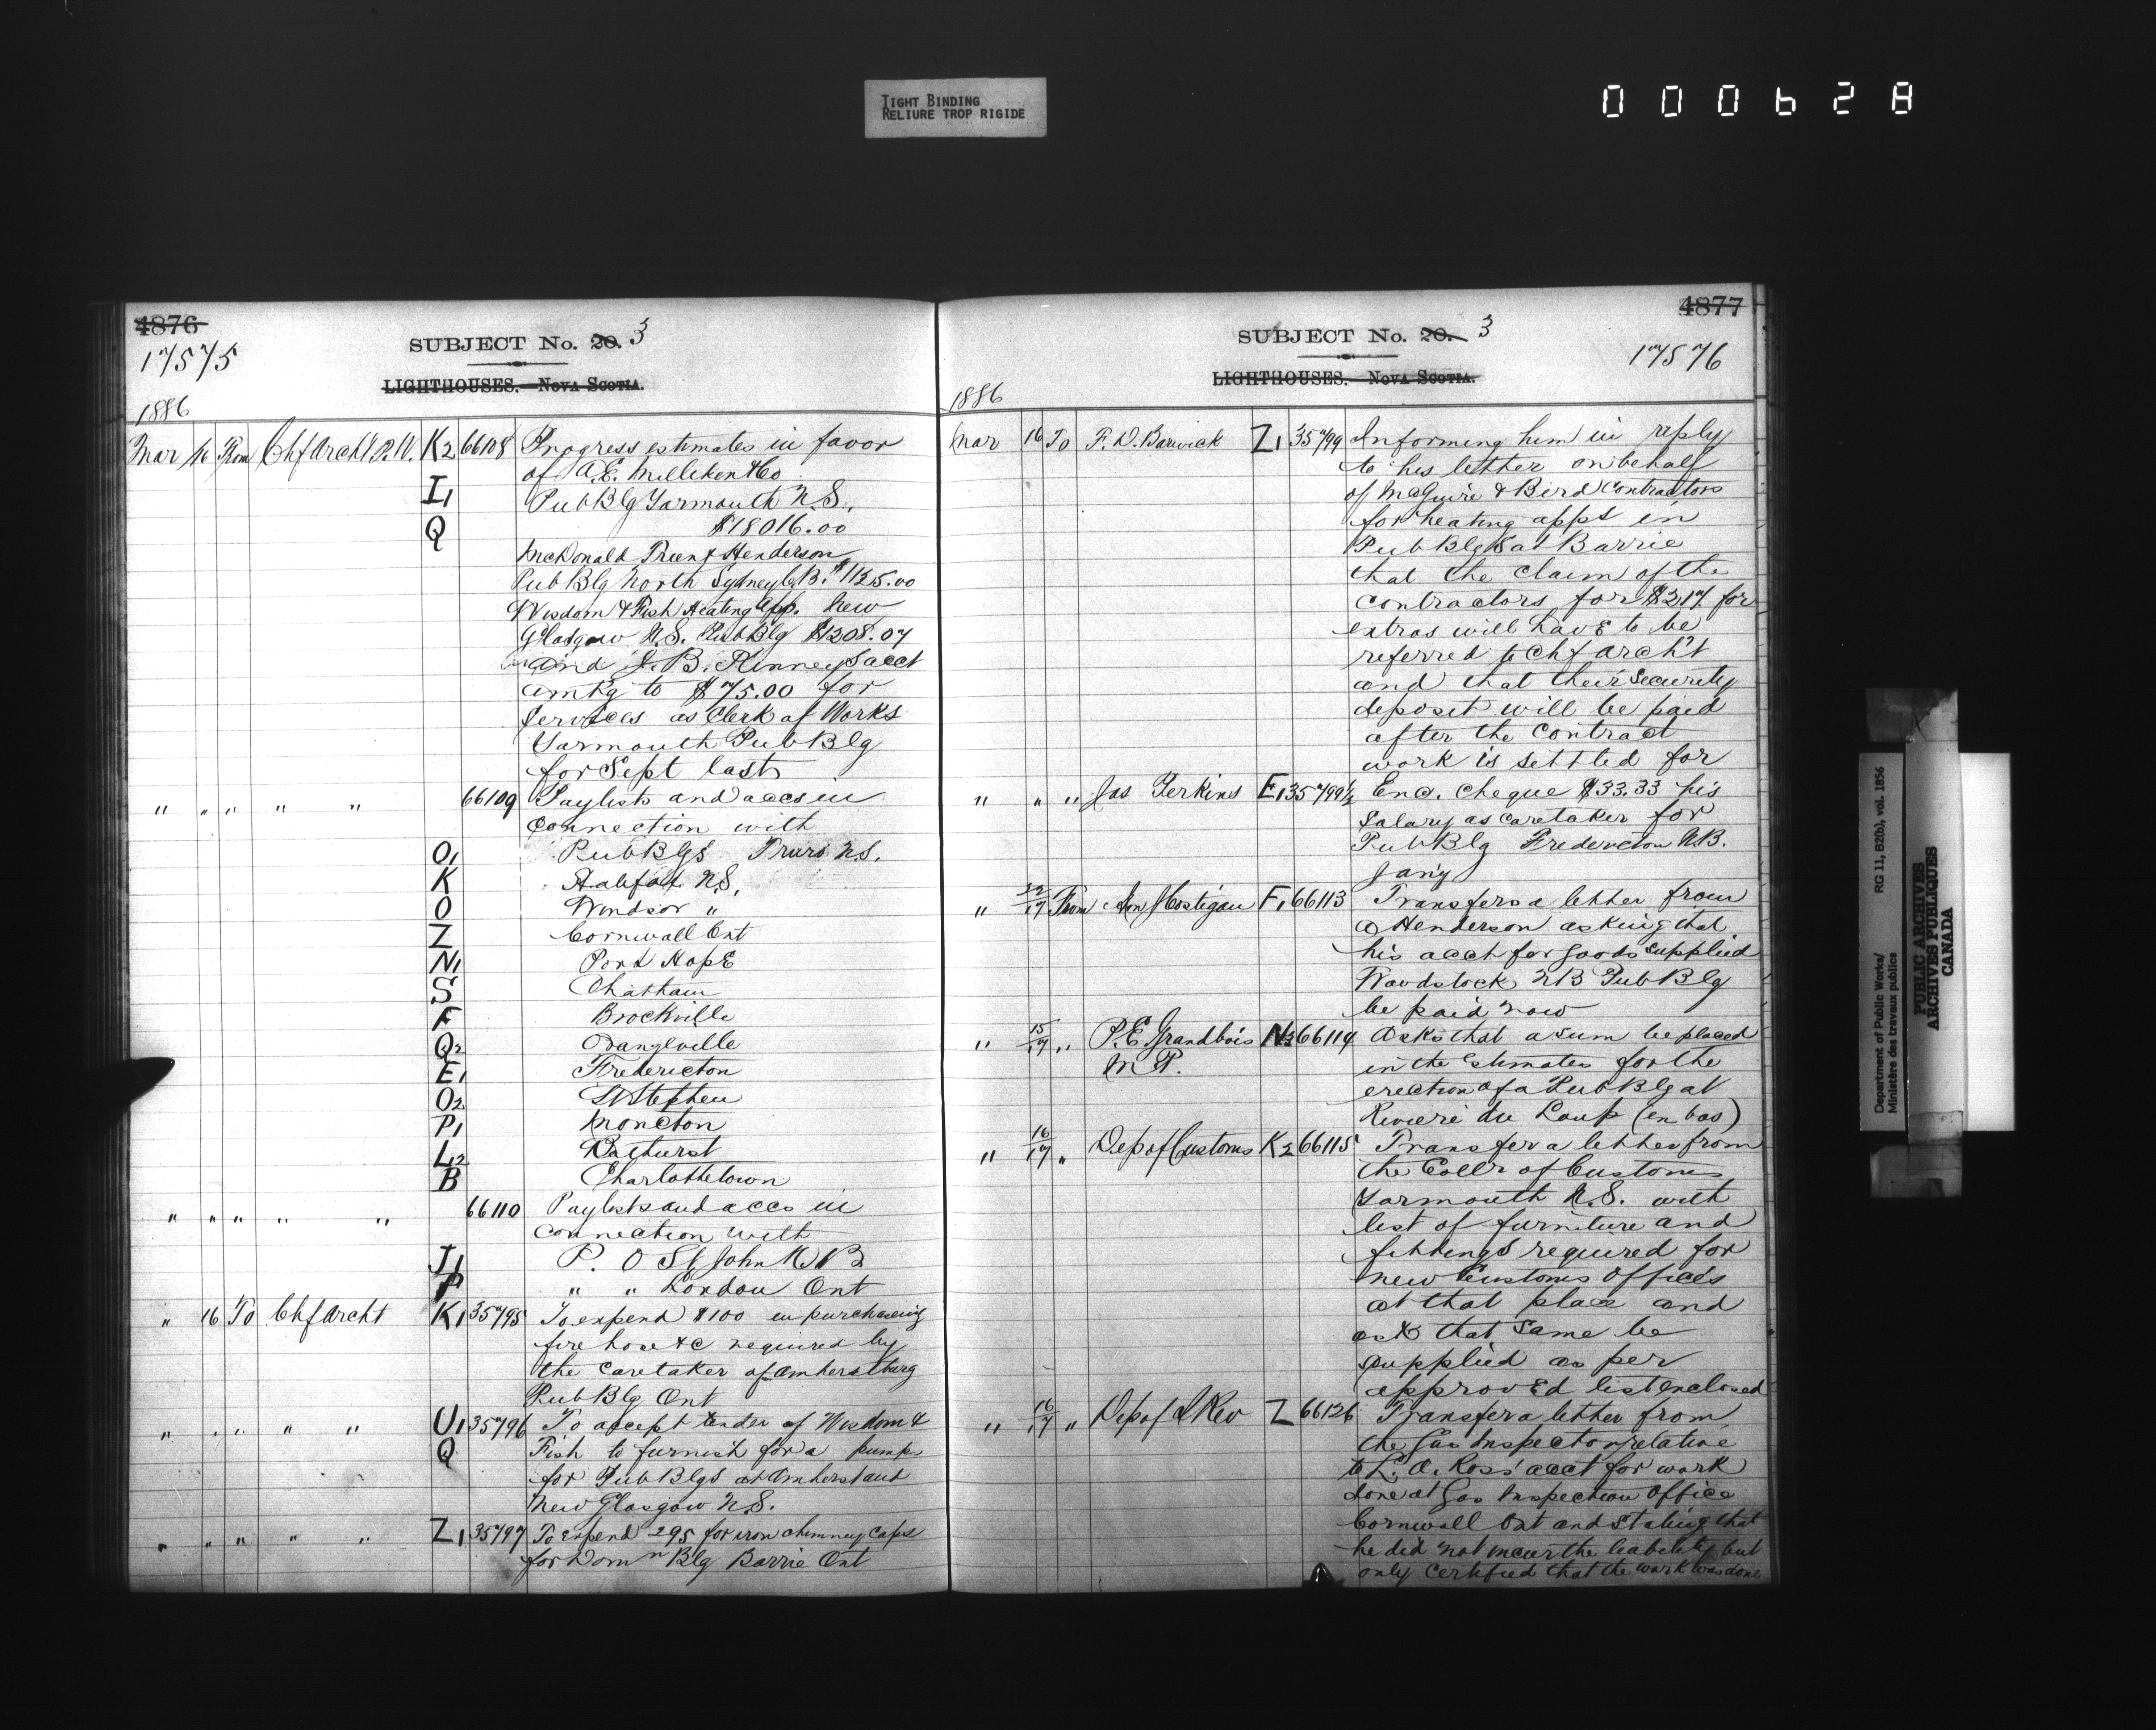 TIGHT BINDING
RELIURE TROP RIGIDE
000628
4876
17575
SUBJECT No. 20. 3
LIGHTHOUSES. — NOVA SCOTIA.
1886
Mar 16 From Chf Archt P.W. K2 66108 Progress estimates in favor
of A.E. Milliken & Co
I1 Pub Blg Yarmouth N.S.,
Q $18016.00
McDonald Preen & Henderson
Pub Blg North Sydney C.B. $1125.00
Wisdom & Fish Heating App. New
Glasgow N.S. Pub Blg $1208.07
and J. B. Kinneys acct
amtg to $75.00 for
services as Clerk of Works
Yarmouth Pub Blg
for Sept last
" " " " " 66109 Paylists and accs in
connection with
O1 Pub Blgs Truro N.S.
K Halifax N.S.
O Windsor "
Z Cornwall Ont
N1 Port Hope
S Chatham
F Brockville
Q2 Orangeville
E1 Fredericton
O2 St Stephen
P1 Moncton
L2 Bathurst
B Charlottetown
" " " " " 66110 Paylists and accs in
connection with
J1 P. O St John N B
P " " London Ont
" 16 To Chf Archt K1 35795 To expend $100 in purchasing
fire hose &c required by
the caretaker of Amherstburg
Pub Blg Ont
" " " " " U1 35796 To accept tender of Wisdom &
Q Fish to furnish for a pump
for Pub Blgs at Amherst and
New Glasgow N.S.
" " " " " Z1 35797 To Expend 295 for iron chimney caps
for Domn Blg Barrie Ont
4877
17576
SUBJECT No. 20. 3
LIGHTHOUSES. — NOVA SCOTIA.
1886
Mar 16 To F. D. Barwick Z1 35799 Informing him in reply
to his letter on behalf
of McGuire & Bird Contractors
for heating apps in
Pub Blgs at Barrie
that the claim of the
contractors for $217 for
extras will have to be
referred to Chf arch't
and that their security
deposit will be paid
after the contract
work is settled for
" " " Jas Perkins E1 35799½ Enc. cheque $33.33 his
salary as caretaker for
Pub Blg Fredericton N.B.
Jany
" 17 From Hon J Costigan F1 66113 Transfers a letter from
a Henderson asking that
his acct for goods supplied
Woodstock NB Pub Blg
be paid now
" 15/17 " P. E. Grandbois N3 66114 Asks that a sum be placed
M P. in the Estimates for the
erection of a Pub Blg at
Riviere du Loup (en bas)
" 16/17 " Dep of Customs K2 66115 Transfer a letter from
the Collr of Customs
Yarmouth N.S. with
list of furniture and
fittings required for
new Customs Offices
at that place and
ask that same be
supplied as per
approved list enclosed
" 16/17 " Dep of I Rev Z 66126 Transfer a letter from
the Gas Inspector relative
to L. A. Ross' acct for work
done at Gas Inspection Office
Cornwall Ont and stating that
he did not incur the liability but
only certified that the work was done
Department of Public Works/ RG 11, B2(b), vol. 1856
Ministère des travaux publics
PUBLIC ARCHIVES
ARCHIVES PUBLIQUES
CANADA